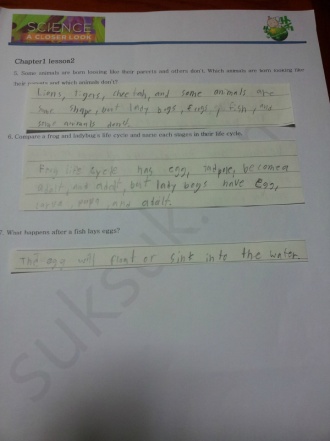 SCIENCE
A CLOSER LOOK
Chapter1 lesson2
5. Some animals are born looking like their parents and others don't. Which animals are born looking like
their parents and which animals don't?
Lions, tigers, cheetah, and some animals are
same shape, but lady bugs, frogs, fish, and
some animals dont.
6. Compare a frog and ladybug's life cycle and name each stages in their life cycle.
Frog life cycle has egg, become a
adult, but lady bugs have egg,
larva, pupa, and adult.
7. What happens after a fish lays eggs?
The egg will float or sink into the water.
suksuk